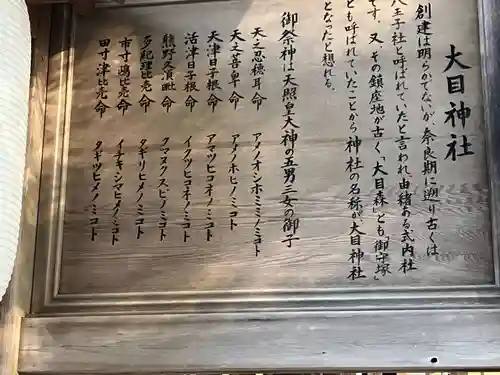 大目神社
創建は明らかでないが、奈良期に遡り古くは
八王子社と呼ばれていたと言われ、由緒ある式内社
です。又、その鎮座地が古く「大目森」とも「御守塚」
とも呼ばれていたことから神社の名称が大目神社
となったと想れる。
御祭神は天照皇大神の五男三女の御子
天之忍穂耳命 アメノオシホミミノミコト
天之菩卑命 アメノホヒノミコト
天津日子根命 アマツヒコネノミコト
活津日子根命 イクツヒコネノミコト
熊野久須毗命 クマヌクスビノミコト
多紀理比売命 タキリヒメノミコト
市寸嶋比売命 イチキシマヒメノミコト
田寸津比売命 タギツヒメノミコト